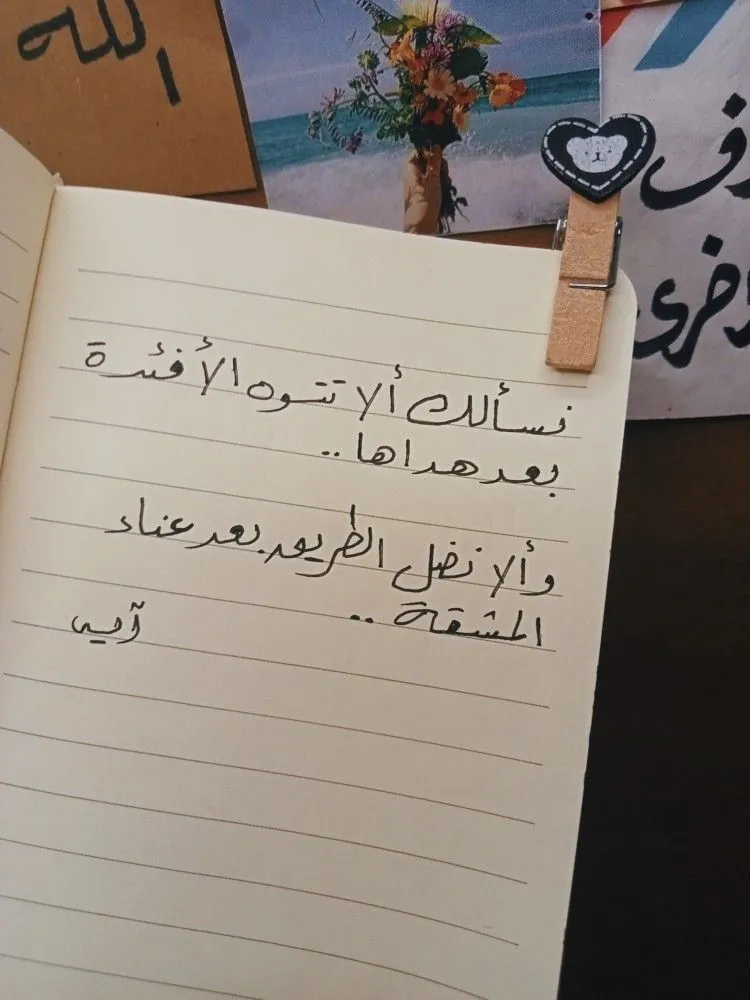 الله
نسألك ألا تتوه الأفئدة
بعد هداها..
وألا نضل الطريق بعد عناء
المشقة ..
آيه